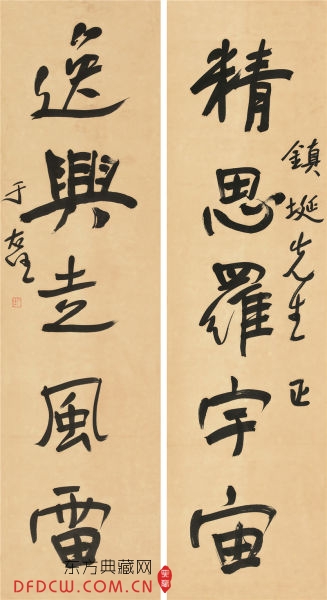 精思羅宇宙
鎮埏先生正
逸興走風雷
于右任
东方典藏网
DFDCW.COM.CN